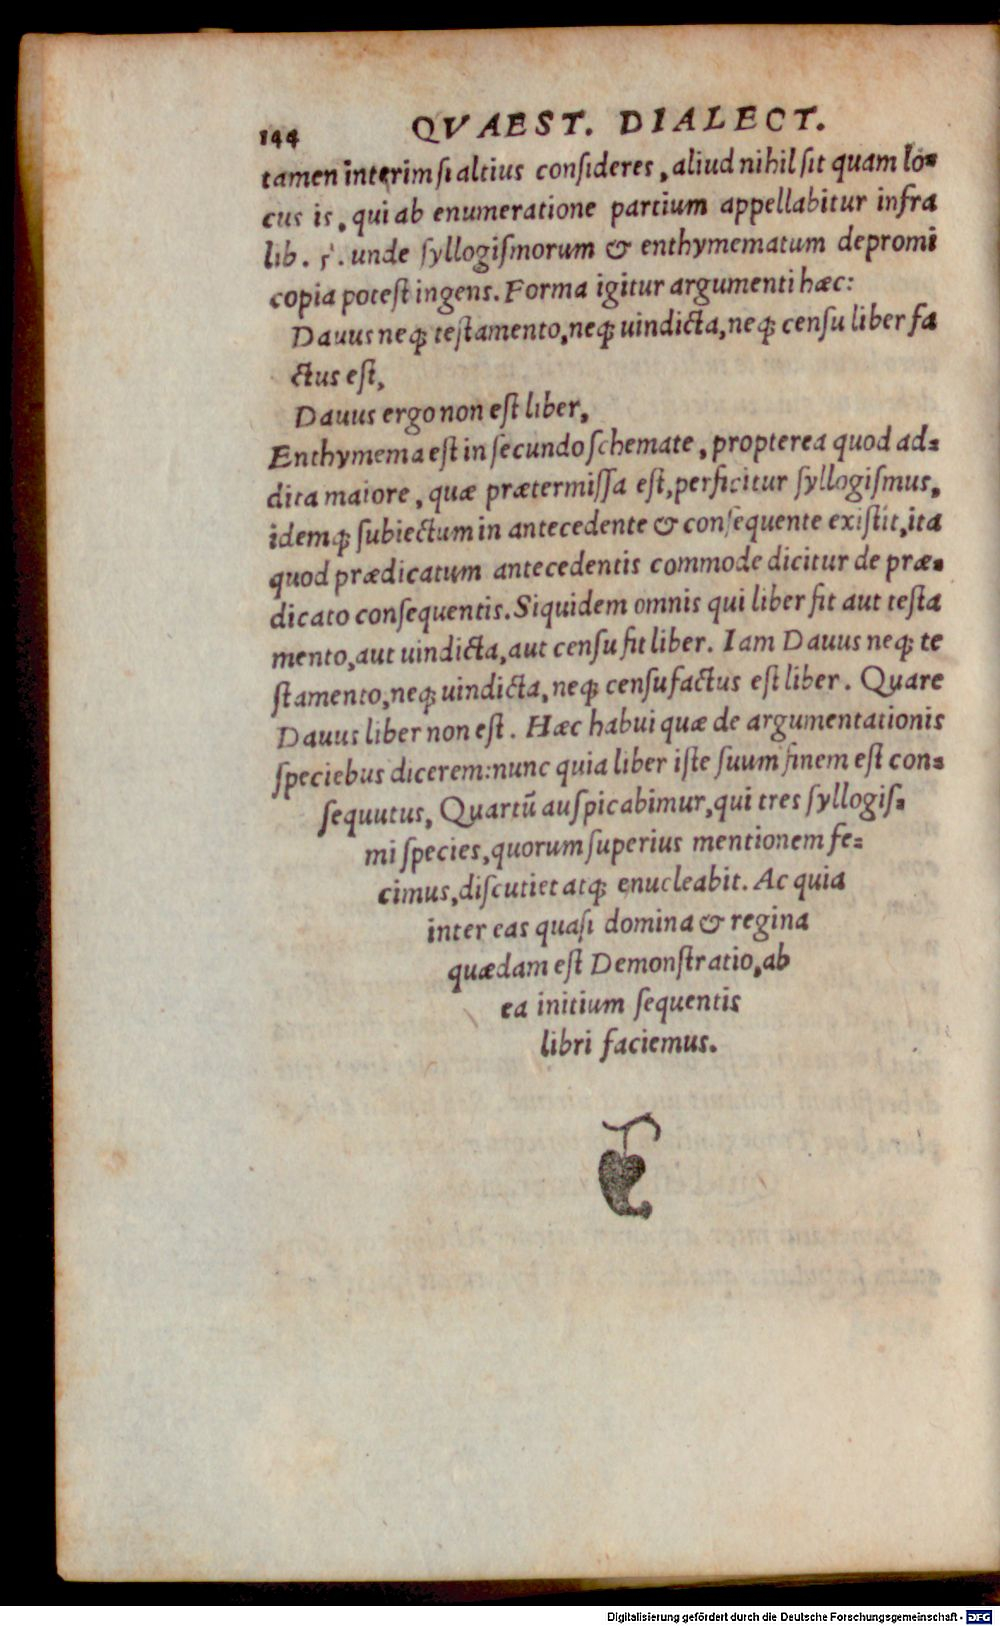 144 QVAEST. DIALECT.
tamen interim si altius consideres, aliud nihil sit quam lo=
cus is, qui ab enumeratione partium appellabitur infra
lib. 5. unde syllogismorum & enthymematum depromi
copia potest ingens. Forma igitur argumenti hæc:
Dauus neq; testamento, neq; uindicta, neq; censu liber fa
ctus est,
Dauus ergo non est liber,
Enthymema est in secundo schemate, propterea quod ad=
dita maiore, quæ prætermissa est, perficitur syllogismus,
idemq; subiectum in antecedente & consequente existit, ita
quod prædicatum antecedentis commode dicitur de præ=
dicato consequentis. Siquidem omnis qui liber fit aut testa
mento, aut uindicta, aut censu fit liber. Iam Dauus neq; te
stamento, neq; uindicta, neq; censu factus est liber. Quare
Dauus liber non est. Hæc habui quæ de argumentationis
speciebus dicerem: nunc quia liber iste suum finem est con=
sequutus, Quartū auspicabimur, qui tres syllogis=
mi species, quorum superius mentionem fe=
cimus, discutiet atq; enucleabit. Ac quia
inter eas quasi domina & regina
quædam est Demonstratio, ab
ea initium sequentis
libri faciemus.
Digitalisierung gefördert durch die Deutsche Forschungsgemeinschaft - DFG